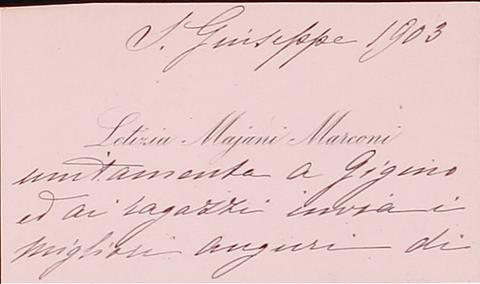 S. Giuseppe 1903
Letizia Majani Marconi
unitamente a Gigino
ed ai ragazzi invia i
migliori auguri di